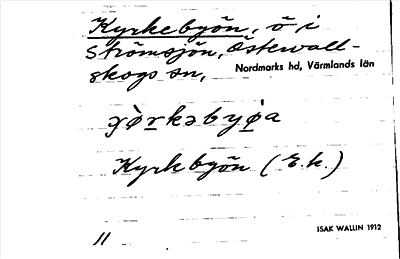 Kyrkebyön, ö i
Strömsjön, Östervall-
skogs sn, Nordmarks hd, Värmlands län
Kyrkbyön (E.k.)
11
ISAK WALLIN 1912